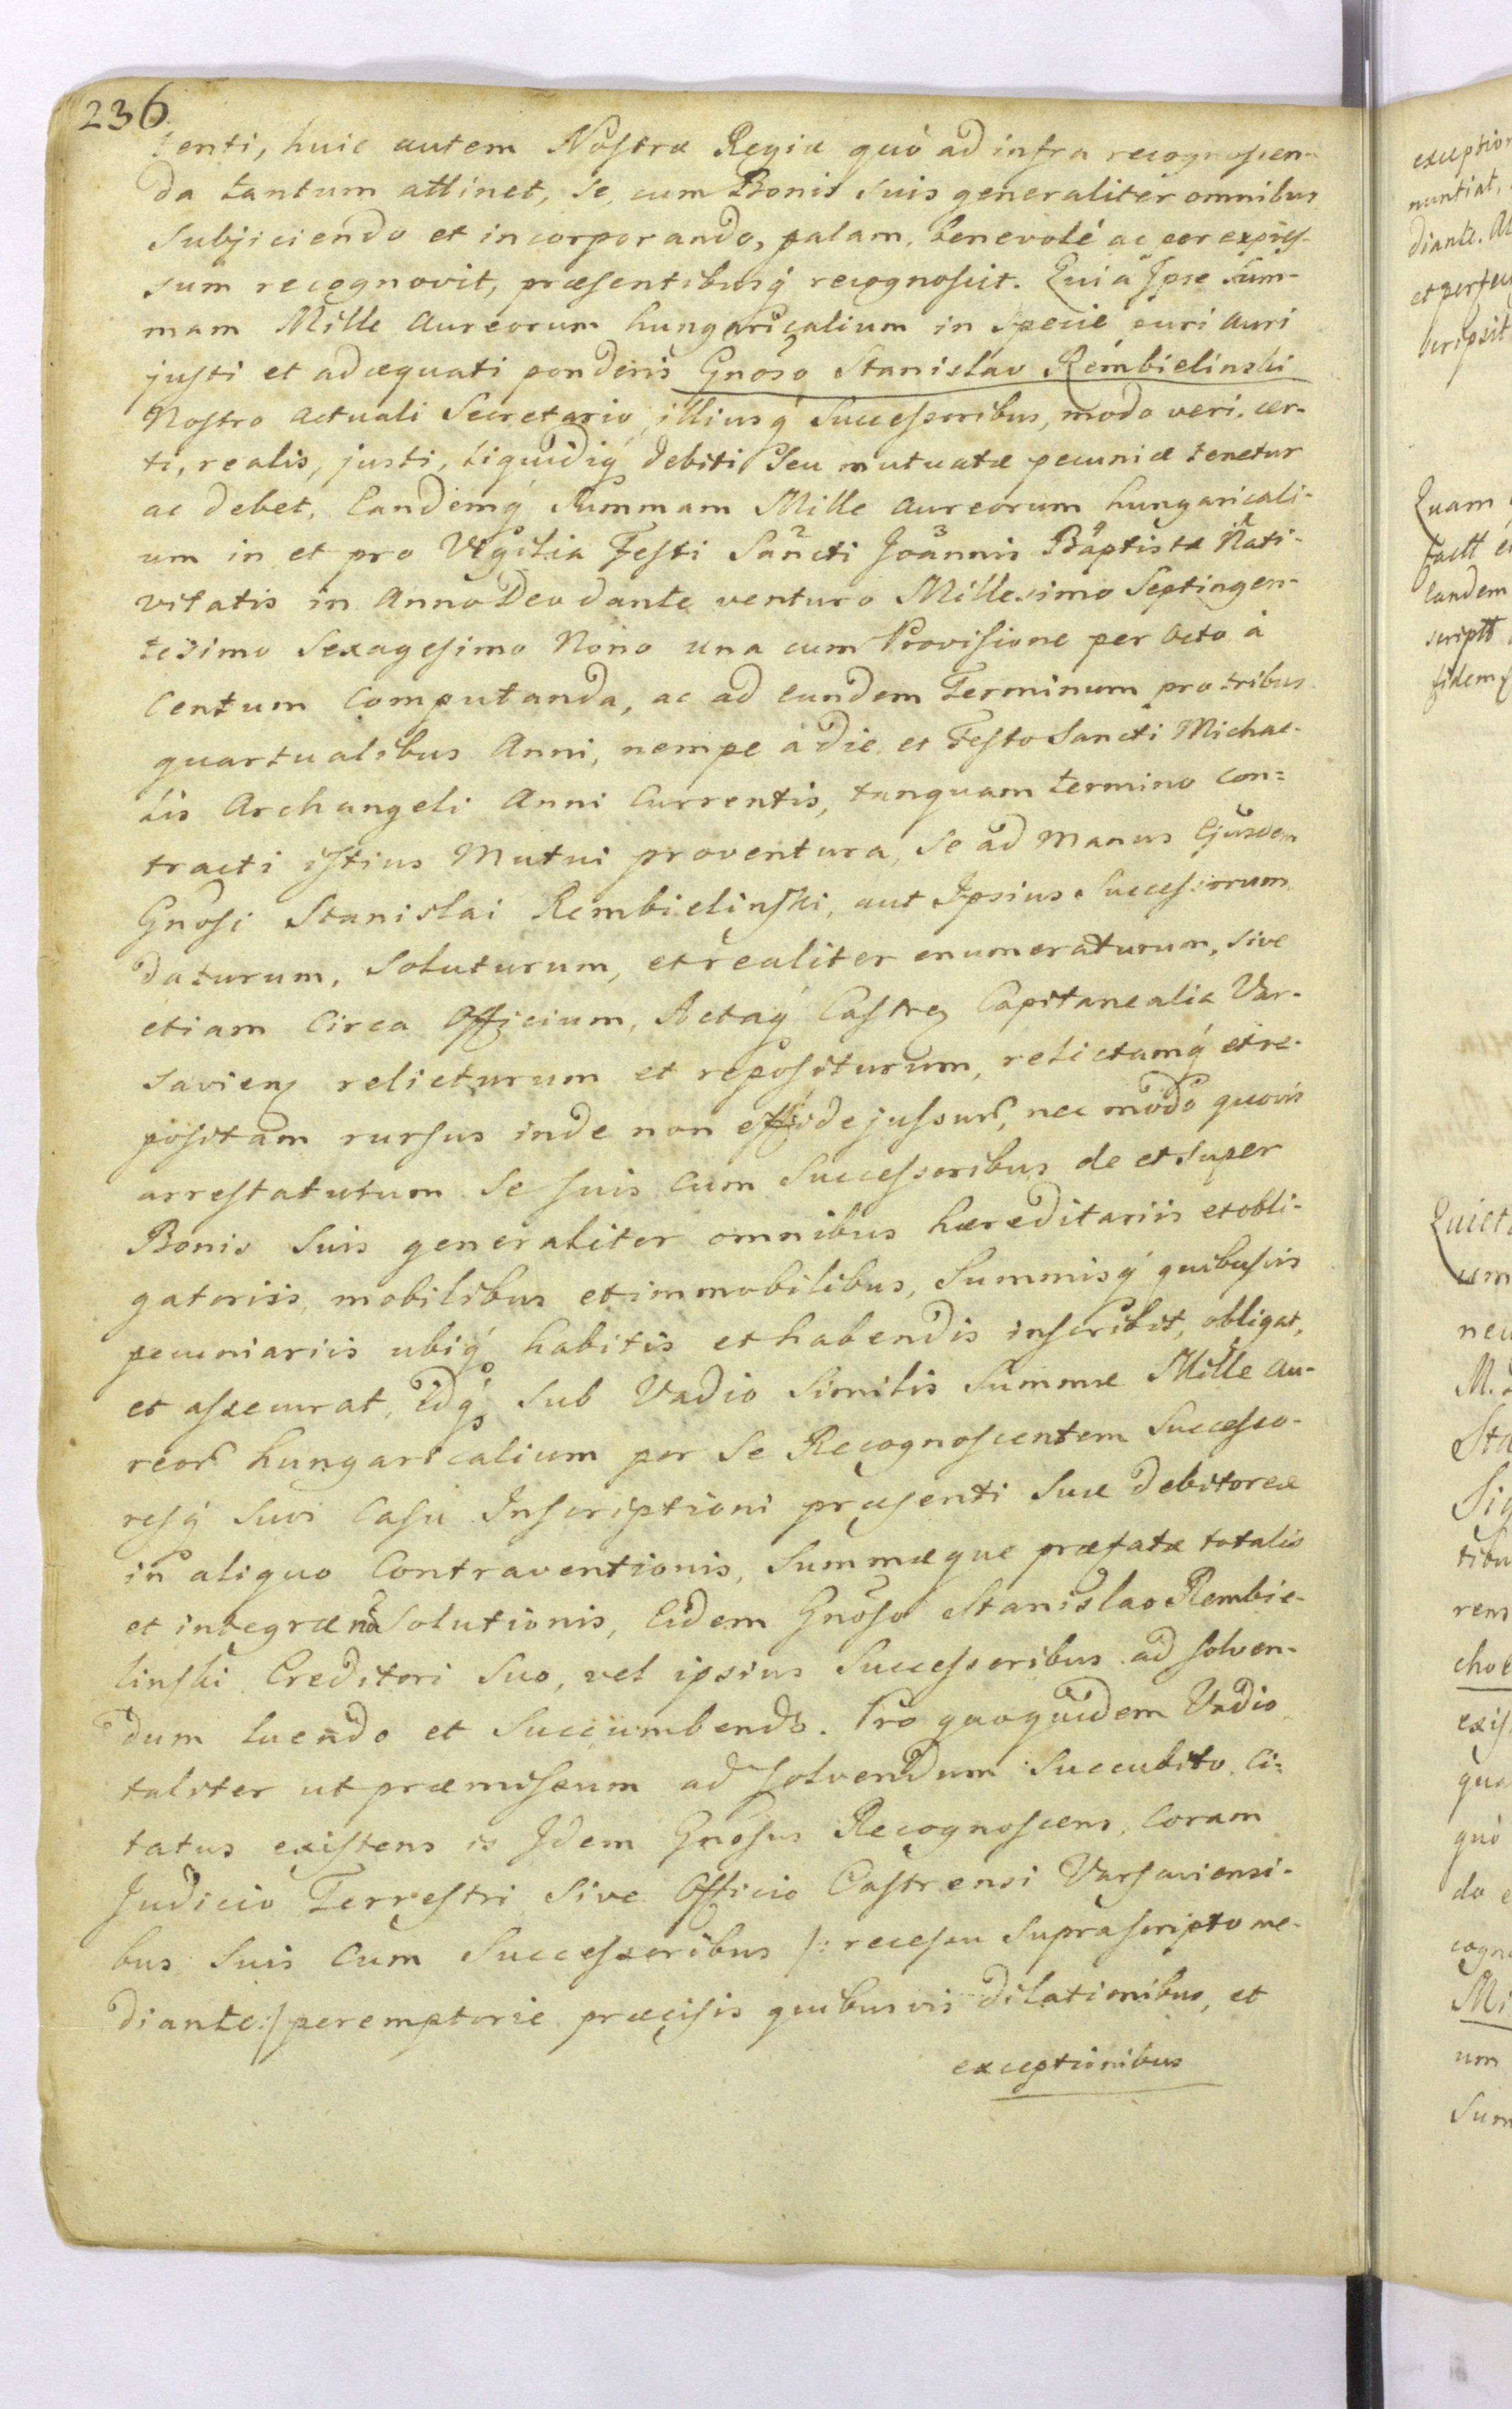 236
tenti, huic autem Nostræ Regiæ quò ad infra recognoscen-
da tantum attinet, se, cum Bonis suis generaliter omnibus
subjiciendo et incorporando, palam, benevolé ac per expres-
sum recognovit, præsentibusq́ recognoscit. Quia Ipse Sum-
mam Mille Aureorum hungaricalium in Specie puri Auri
justi et adæquati ponderis Gnoso Stanislao Rembielinski
Nostro actuali Secretario, illiusq́ Successoribus, modo veri, cer-
ti, realis, justi, liquidiq́ debiti seu mutuatæ pecuniæ tenetur
ac debet, Eandemq́ Summam Mille Aureorum hungaricali-
um in et pro Vigilia Festi Sancti Joannis Baptistæ Nati-
vitatis in Anno Deo dante venturo Millesimo Septingen-
tesimo Sexagesimo Nono una cum Provisione per Octo à
Centum Computanda, ac ad eundem Terminum pro tribus
quartualibus Anni, nempe à die et Festo Sancti Michae-
lis Archangeli Anni Currentis, tanquam termino con=
tracti istius Mutui proventura, Se ad manus Ejusdem
Gnosi Stanislai Rembielinski, aut Ipsius Successorum
daturum, Soluturum, et realiter enumeraturum, sive
etiam Circa Officium, Actaq́ Castrẽ Capitanealia Var-
savieñ relicturum et repositurum, relictamq́ et re-
positam rursus inde non effidejussur, nec modo quovis
arrestatutum Se suis cum Successoribus de et super
Bonis Suis generaliter omnibus hæreditariis et obli-
gatoriis, mobilibus et immobilibus, Summisq́ quibusvis
pecuniariis ubiq́ habitis et habendis inscribit, obligat,
et assecurat, Idq́ Sub Vadio similis Summæ Mille Au-
reor hungaricalium per Se Recognoscentem Successo-
resq́ Suos Casu Inscriptioni præsenti Suæ debitoreæ
in aliquo Contraventionis, Summæque præfatæ totalis
et integræ nõ Solutionis, Eidem Gnoso Stanislao Rembie-
linski Creditori Suo, vel ipsius Successoribus ad solven-
dum luendo et Succumbendo. Pro quoquidem Vadio
taliter ut præmissum ad solvendum Succubito, Ci=
tatus existens is Idem Gnosus Recognoscens, Coram
Judicio Terrestri Sive Officio Castrensi Varsaviensi-
bus Suis Cum Successoribus /: recessu Suprascripto me-
diante :/ peremptorie præcisis quibusvis dilationibus, et
exceptionibus